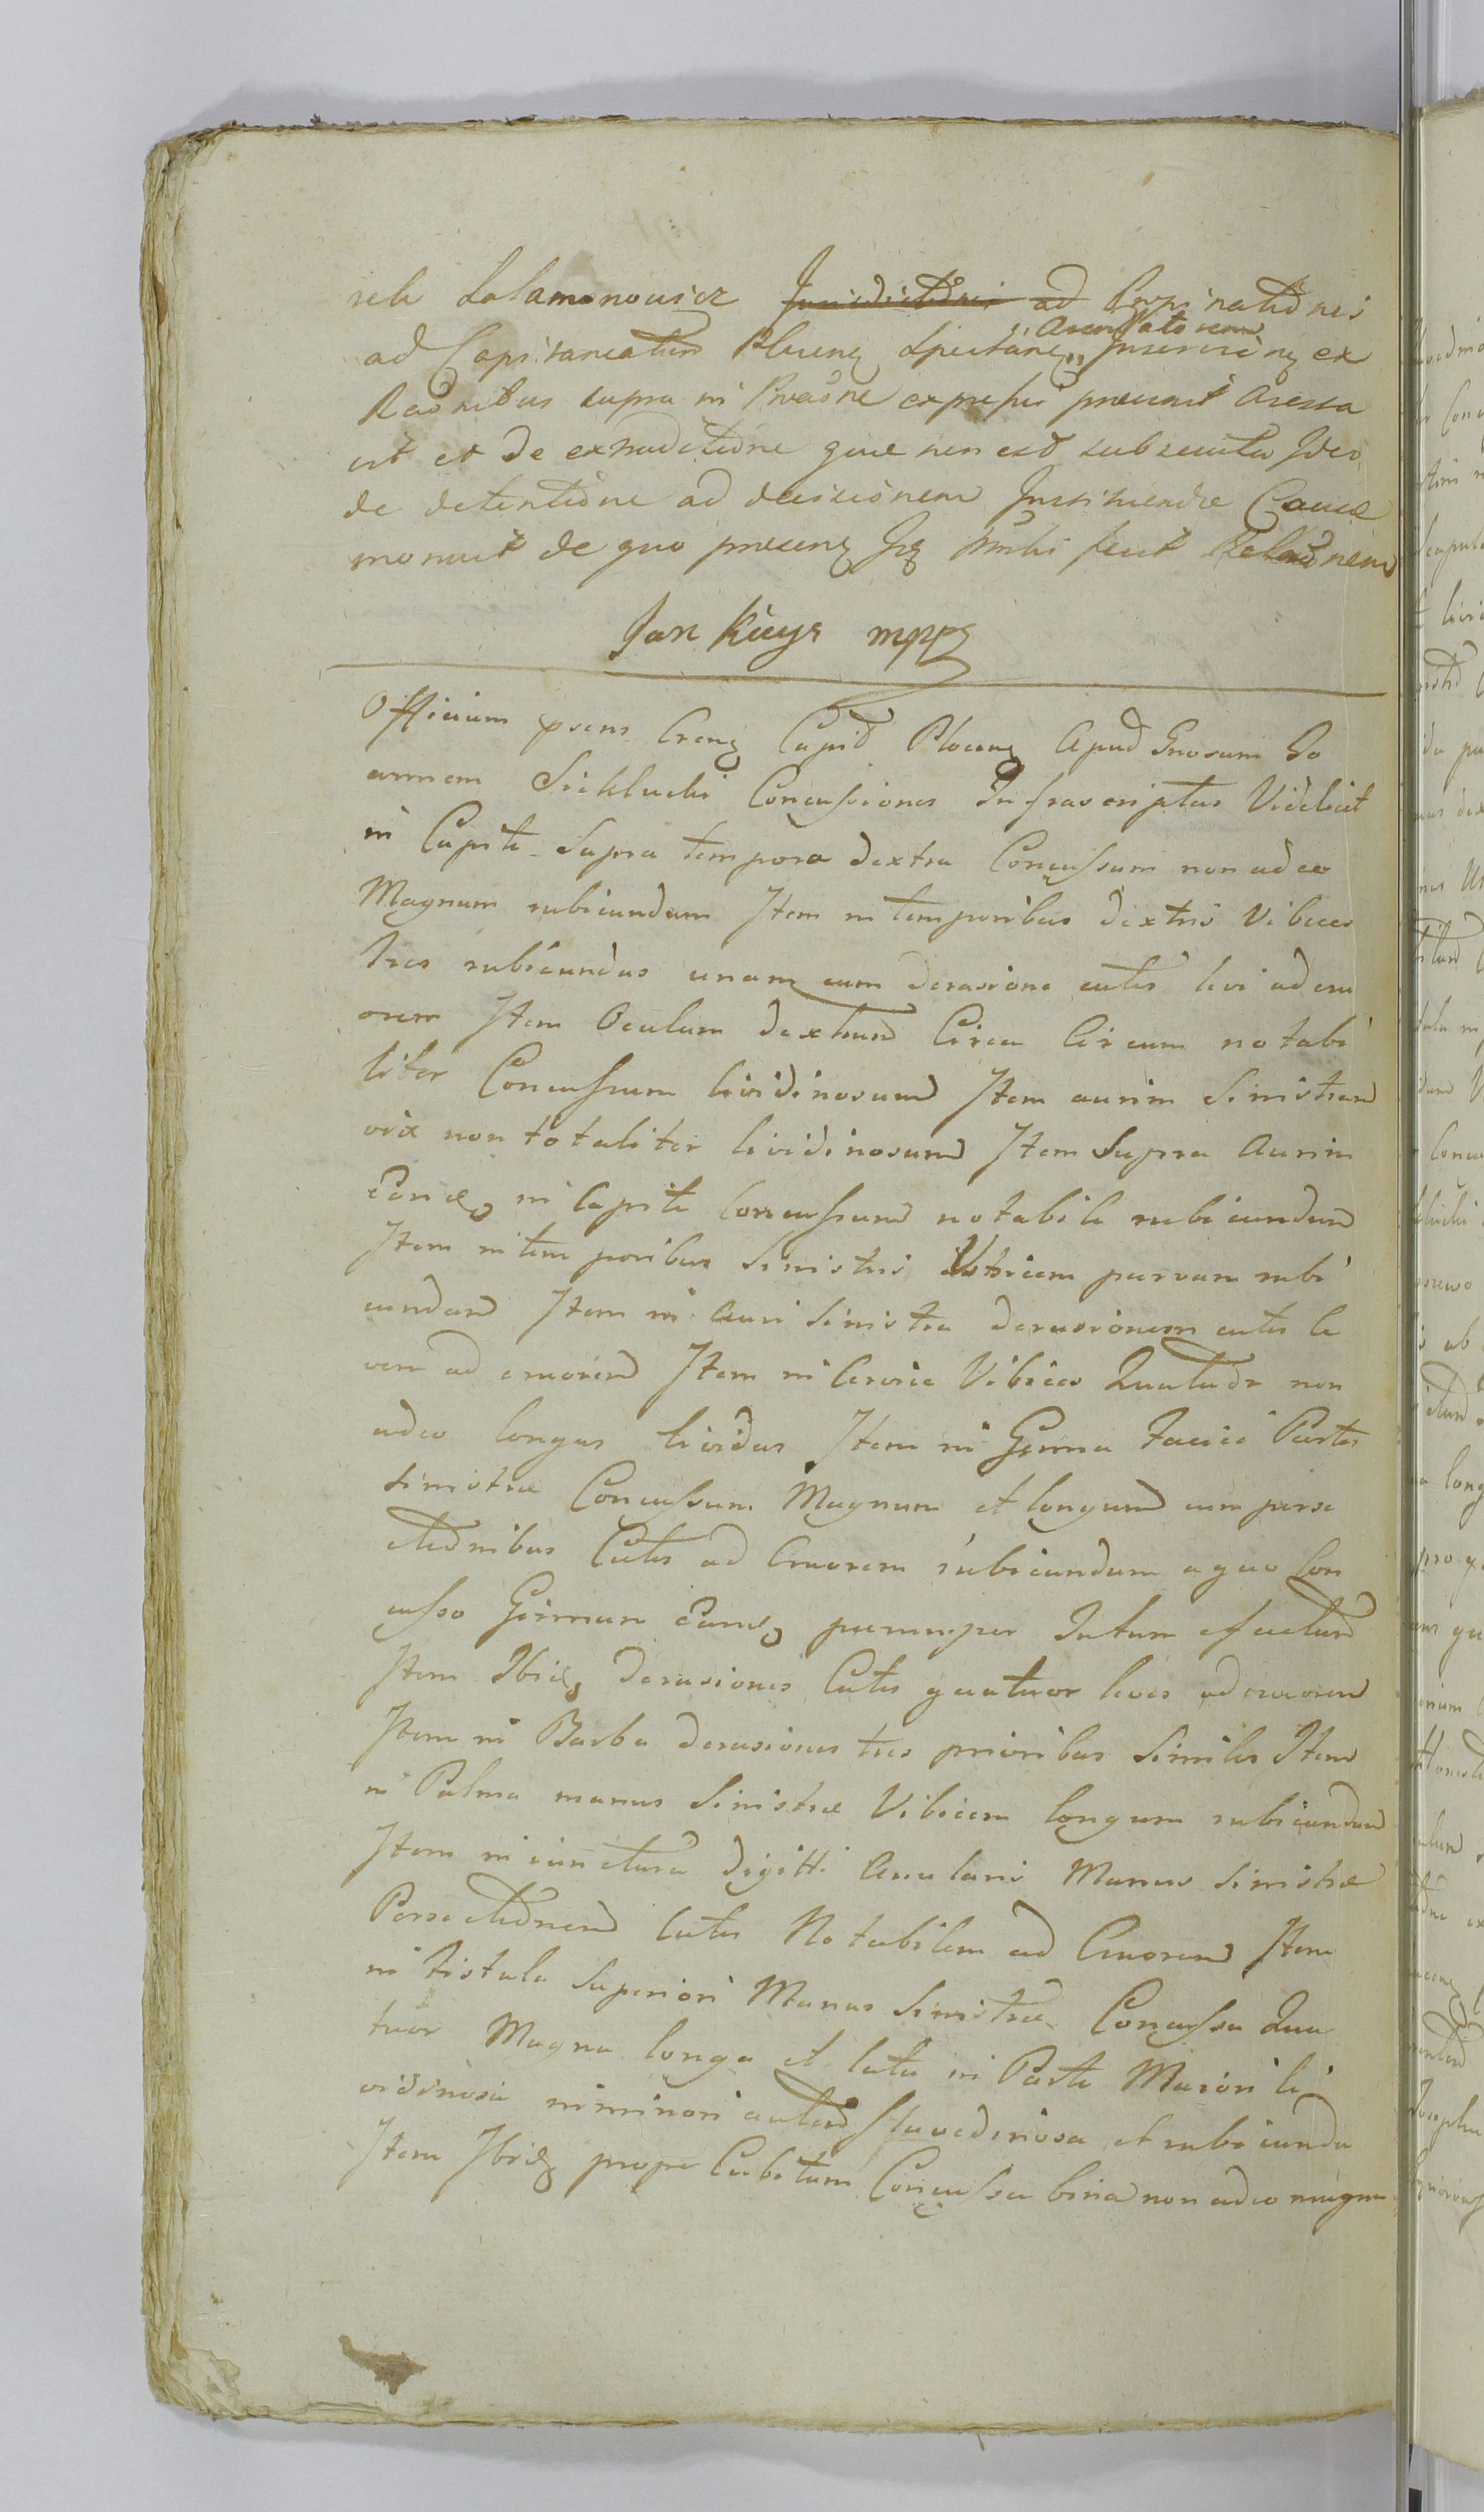 sek Salamonowicz ad Propinationis
Arendatorem
ad Capitaneatum Plocen Spectane Inservien ex
Raonibus supra in Praone expressis presenit Aresta
vit et de extraditione que non est subsecuta Ideo
de detentione ad decisionem Instituendæ Causæ
monuit de quo presens Jg fecit Relaonem
Jan Kuys mpp
Officium psens Cren Capid Plocen Apud Gnosum Jo
annem Siklucki Concussiones Infrascriptas Videlicet
in Capite Supra tempora dextra Concussum non adeo
Magnum rubicundum Item in temporibus dextris Vibices
tres rubicundas unam cum derasione cutis levi ad cru
orem Item Oculum dextrum Circa Circum notabi
liter Concussum lividinosum Item aurim Sinistram
vix non totaliter lividinosum Item Supra Aurim
Eand in Capite Concussum notabile rubicundum
Item in temporibus Sinistris Vibicem parvam rubi
cundam Item in Auri Sinistra derasionem cutis le
vem ad cruorem Item in Cervice Vibices Quatuor non
adeo longas lividas Item in Genna Faciei Partis
Sinistræ Concussum Magnum et longum cum perse
ctionibus Cutis ad Cruorem rubicundum a quo Con
cusso Gennam Eand parumper Intum efectum
Item Ibid derasiones Cutis quatuor leves ad cruorem
Item in Barba derasiones tres prioribus Similes Item
in Palma manus Sinistræ Vibicem longam rubicundam
Item in iunctura digitti Anularis Manus Sinistræ
Persectionem Cutis Notabilem ad Cruorem Item
in Fistula Superiori Manus Sinistræ Concussa Qua
tuor Magna longa et lata in Parte Maiori li
vidinosa in minori autem flavedinosa et rubicunda
Item Ibid prope Cubitum Concussa bina non adeo magna